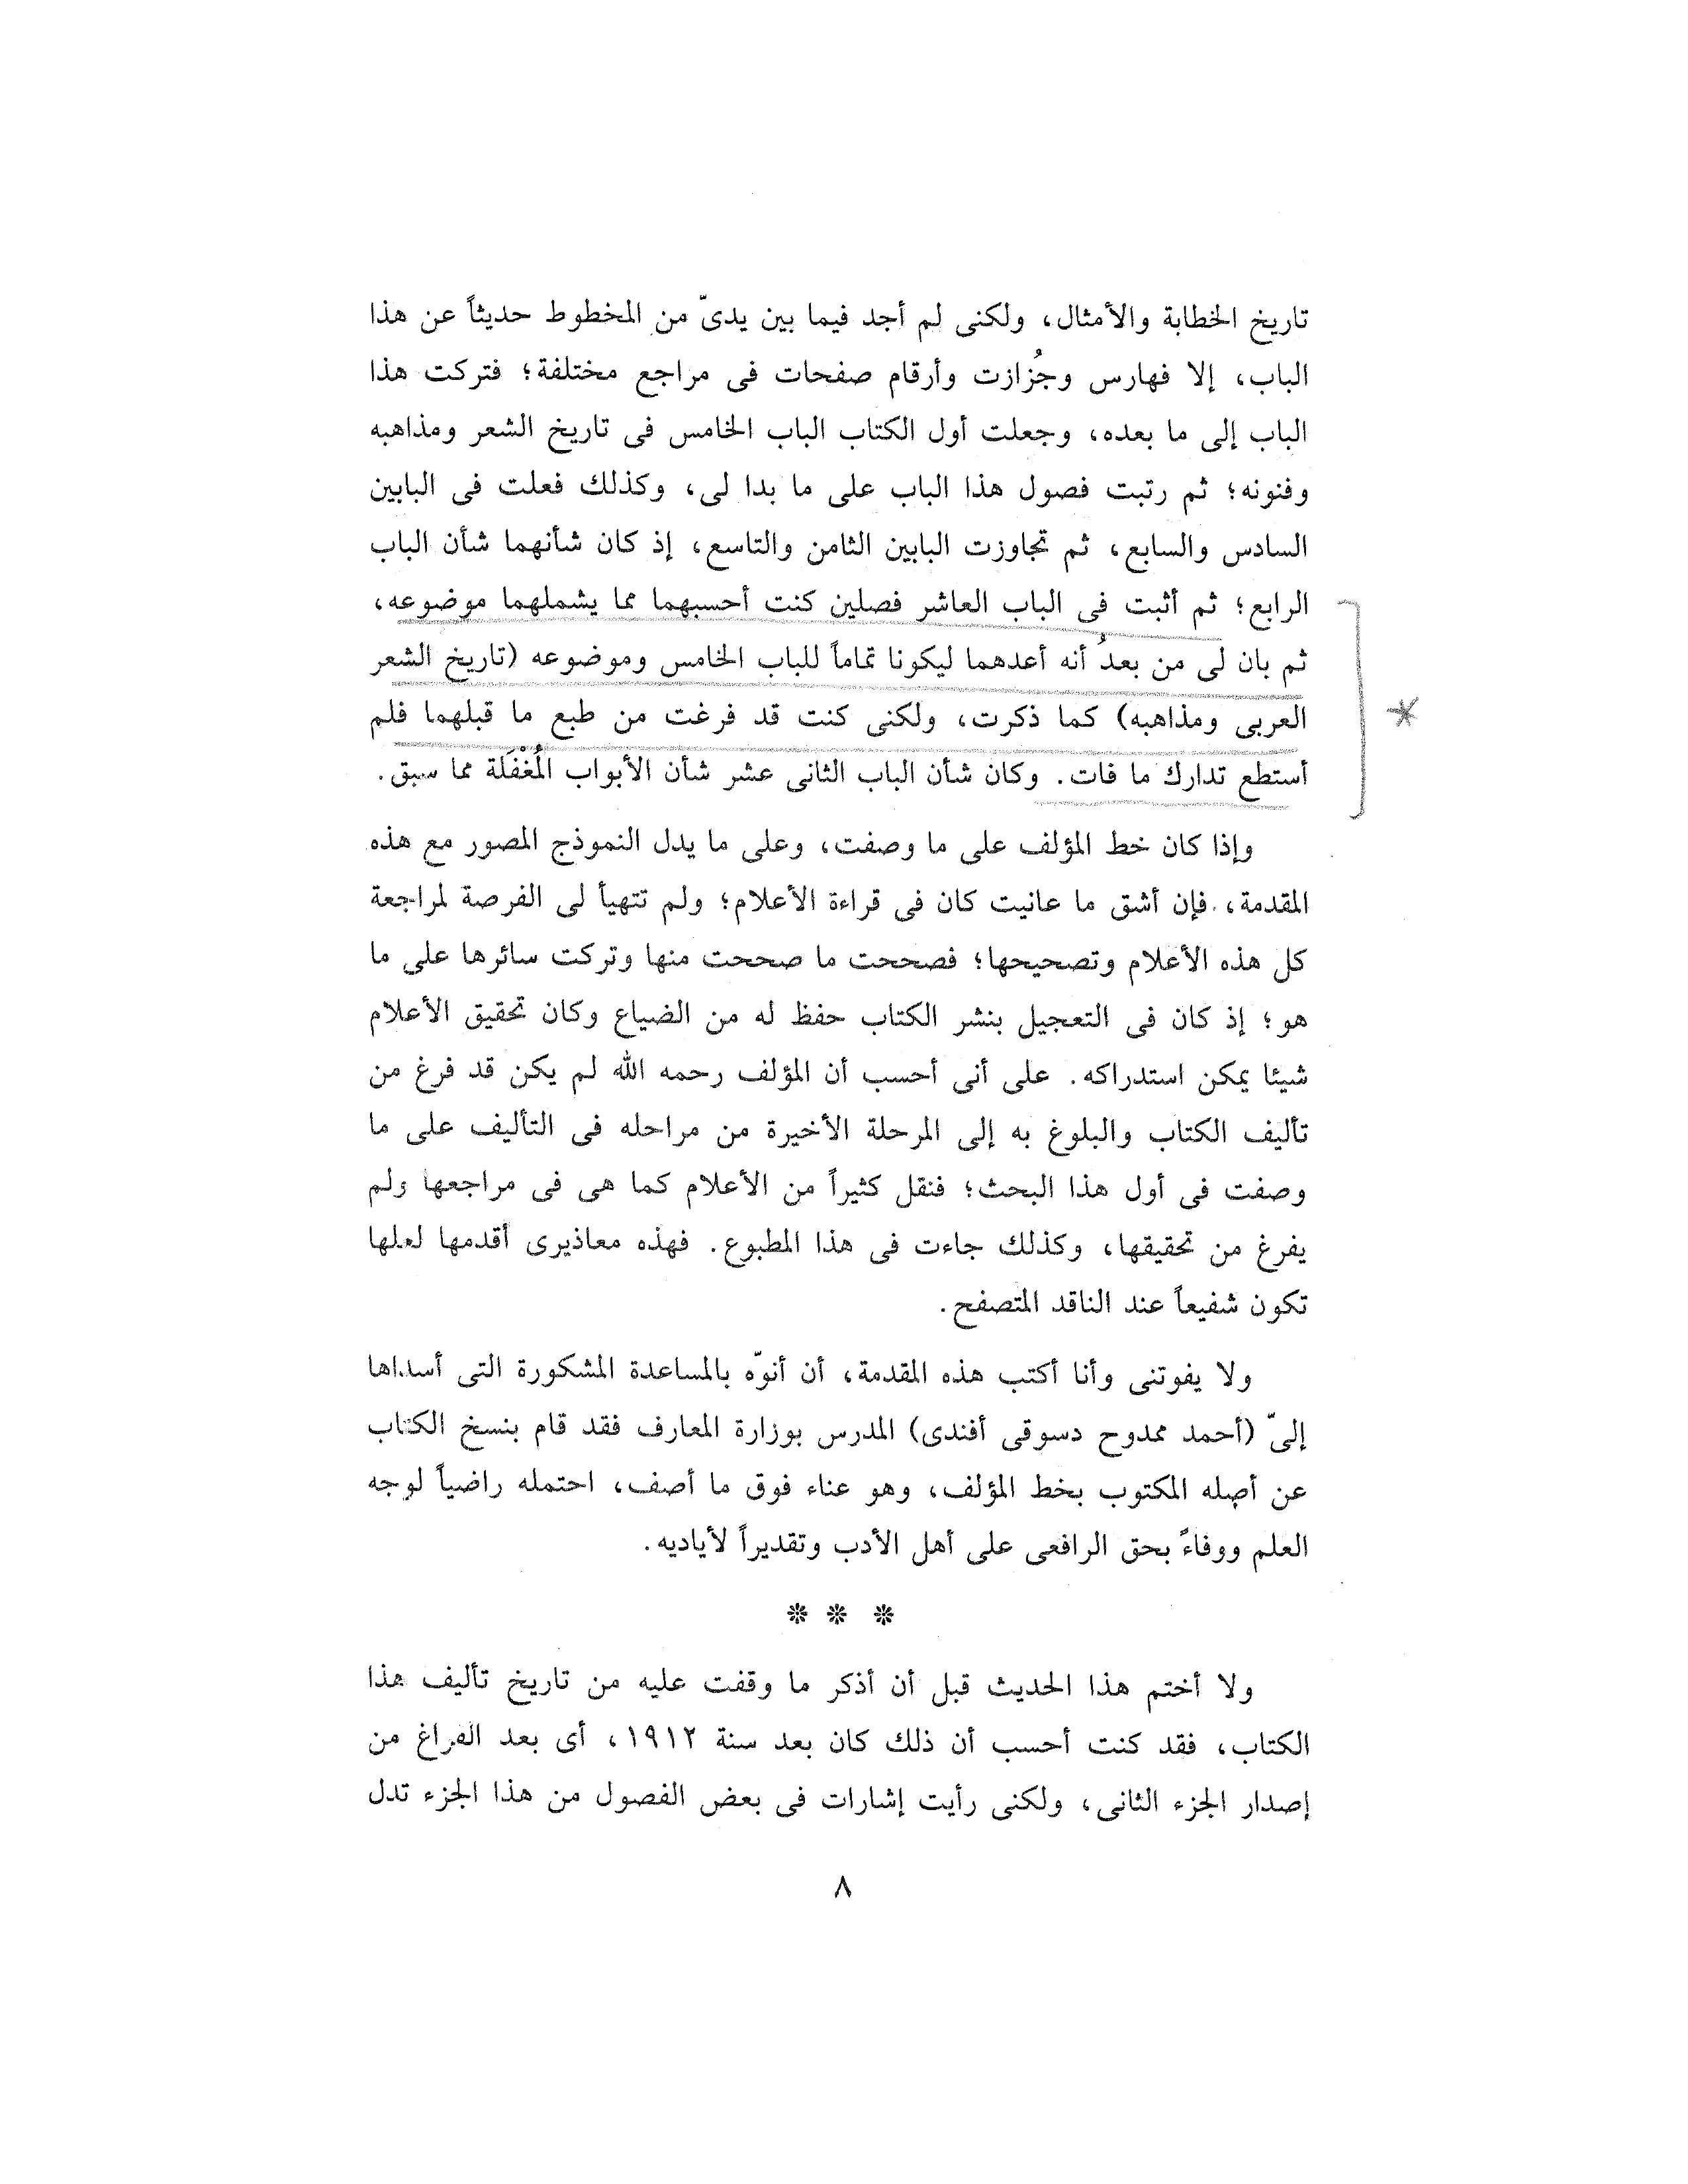 تاريخ الخطابة والأمثال، ولكنى لم أجد فيما بين يدىّ من المخطوط حديثاً عن هذا
الباب، إلا فهارس وجُزازت وأرقام صفحات فى مراجع مختلفة؛ فتركت هذا
الباب إلى ما بعده، وجعلت أول الكتاب الباب الخامس فى تاريخ الشعر ومذاهبه
وفنونه؛ ثم رتبت فصول هذا الباب على ما بدا لى، وكذلك فعلت فى البابين
السادس والسابع، ثم تجاوزت البابين الثامن والتاسع، إذ كان شأنهما شأن الباب
الرابع؛ ثم أثبت فى الباب العاشر فصلين كنت أحسبهما مما يشملهما موضوعه،
ثم بان لى من بعدُ أنه أعدهما ليكونا تماماً للباب الخامس وموضوعه (تاريخ الشعر
العربى ومذاهبه) كما ذكرت، ولكنى كنت قد فرغت من طبع ما قبلهما فلم
أستطع تدارك ما فات. وكان شأن الباب الثانى عشر شأن الأبواب المُغْفَلَة مما سبق.
وإذا كان خط المؤلف على ما وصفت، وعلى ما يدل النموذج المصور مع هذه
المقدمة، فإن أشق ما عانيت كان فى قراءة الأعلام؛ ولم تتهيأ لى الفرصة لمراجعة
كل هذه الأعلام وتصحيحها؛ فصححت ما صححت منها وتركت سائرها على ما
هو؛ إذ كان فى التعجيل بنشر الكتاب حفظ له من الضياع وكان تحقيق الأعلام
شيئا يمكن استدراكه. على أنى أحسب أن المؤلف رحمه الله لم يكن قد فرغ من
تأليف الكتاب والبلوغ به إلى المرحلة الأخيرة من مراحله فى التأليف على ما
وصفت فى أول هذا البحث؛ فنقل كثيراً من الأعلام كما هى فى مراجعها ولم
يفرغ من تحقيقها، وكذلك جاءت فى هذا المطبوع. فهذه معاذيرى أقدمها لعلها
تكون شفيعاً عند الناقد المتصفح.
ولا يفوتنى وأنا أكتب هذه المقدمة، أن أنوّه بالمساعدة المشكورة التى أسداها
إلىّ (أحمد ممدوح دسوقى أفندى) المدرس بوزارة المعارف فقد قام بنسخ الكتاب
عن أصله المكتوب بخط المؤلف، وهو عناء فوق ما أصف، احتمله راضياً لوجه
العلم ووفاءً بحق الرافعى على أهل الأدب وتقديراً لأياديه.
* * *
ولا أختم هذا الحديث قبل أن أذكر ما وقفت عليه من تاريخ تأليف هذا
الكتاب، فقد كنت أحسب أن ذلك كان بعد سنة ١٩١٢، أى بعد الفراغ من
إصدار الجزء الثانى، ولكنى رأيت إشارات فى بعض الفصول من هذا الجزء تدل
٨